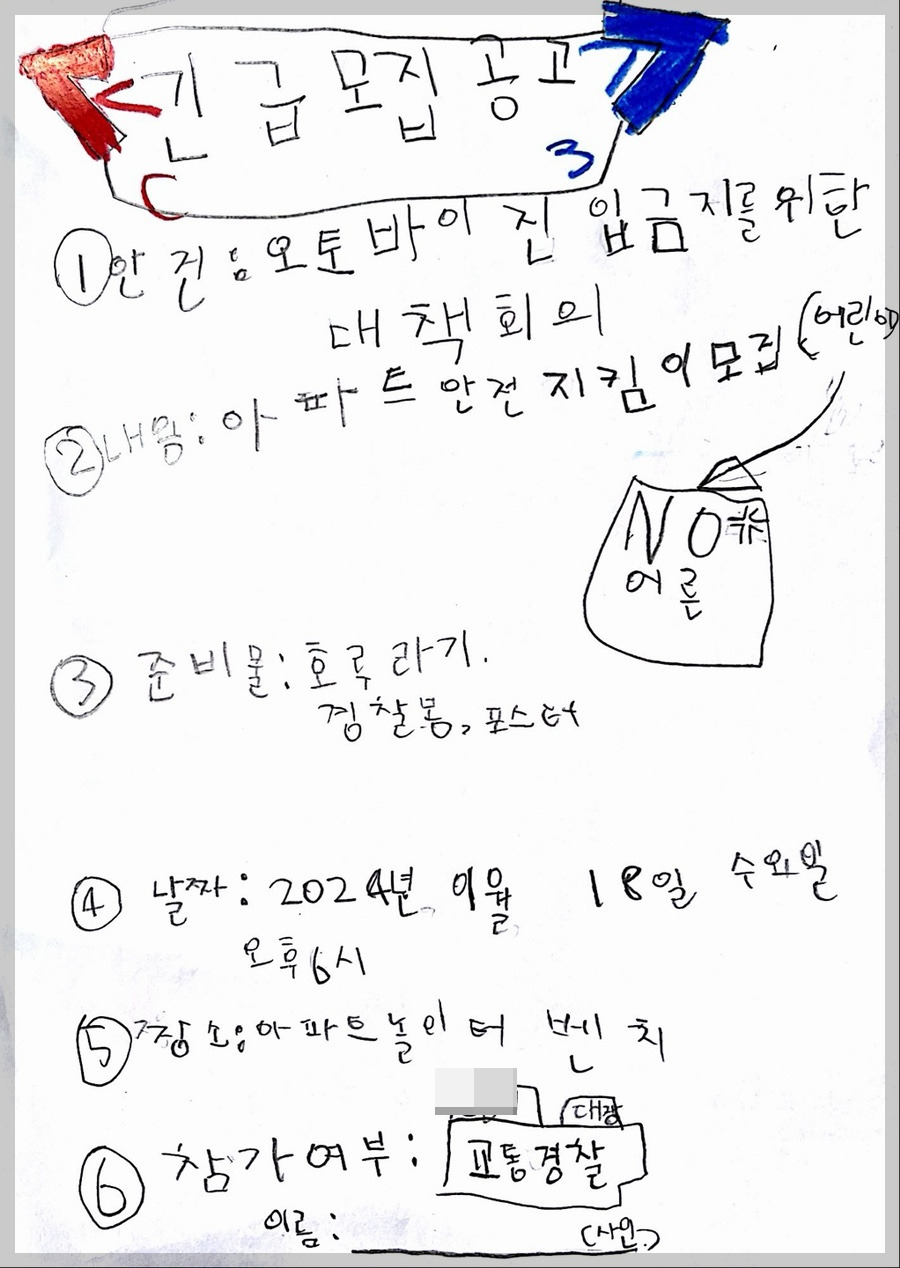 긴급모집공고
C 3
① 안건: 오토바이 진입금지를위한
대책회의
② 내용: 아파트 안전지킴이모집(어린이)
NO
어른
③ 준비물: 호루라기.
경찰봉, 포스터
④ 날짜: 2024년 9월 18일 수요일
오후6시
⑤ 장소: 아파트놀이터 벤치
대장
⑥ 참가여부: 교통경찰
이름: (사인)